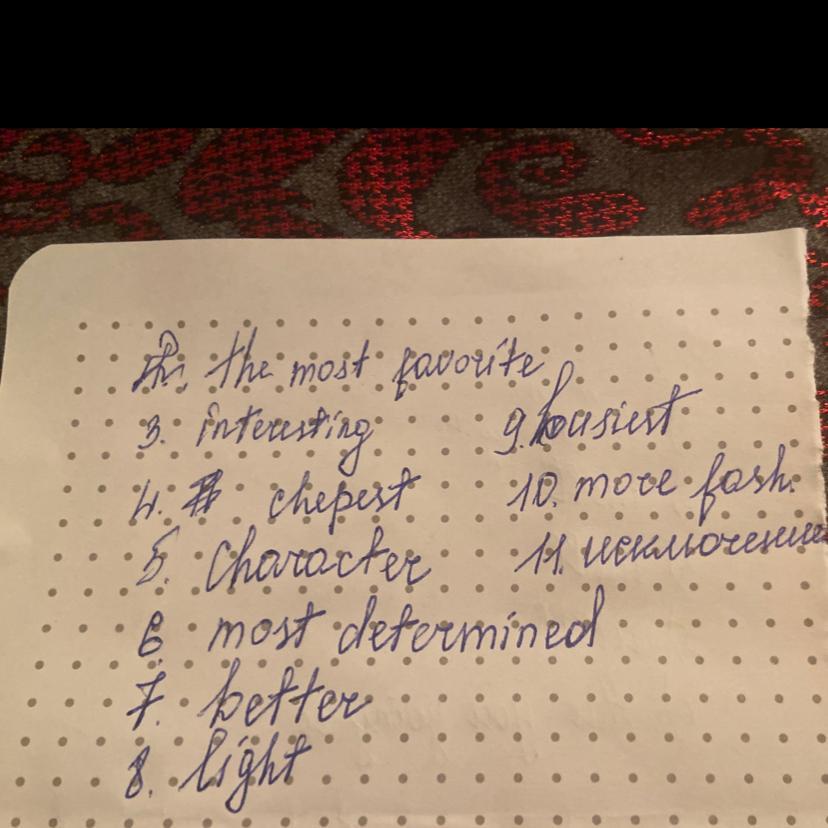 the most favorite
3. interesting
4. chepest
5. Character
6. most determined
7. better
8. light
9. busiest
10. more fash.
11. исключение